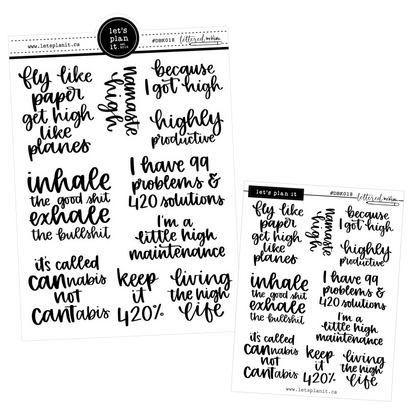 let's
plan
it
www.letsplanit.ca
#DBK018
lettered
fly like
paper
get high
like
planes
namaste
high
because
I got high
highly
productive
inhale
the good shit
exhale
the bullshit
I have 99
problems &
420 solutions
I'm a
little high
maintenance
it's called
cannabis
not
cantabis
keep
it
420%
living
the high
life
let's plan it
#DBK018
lettered
fly like
paper
get high
like
planes
namaste
high
because
I got high
highly
productive
inhale
the good shit
exhale
the bullshit
I have 99
problems &
420 solutions
I'm a
little high
maintenance
it's called
cannabis
not
cantabis
keep
it
420%
living
the high
life
www.letsplanit.ca